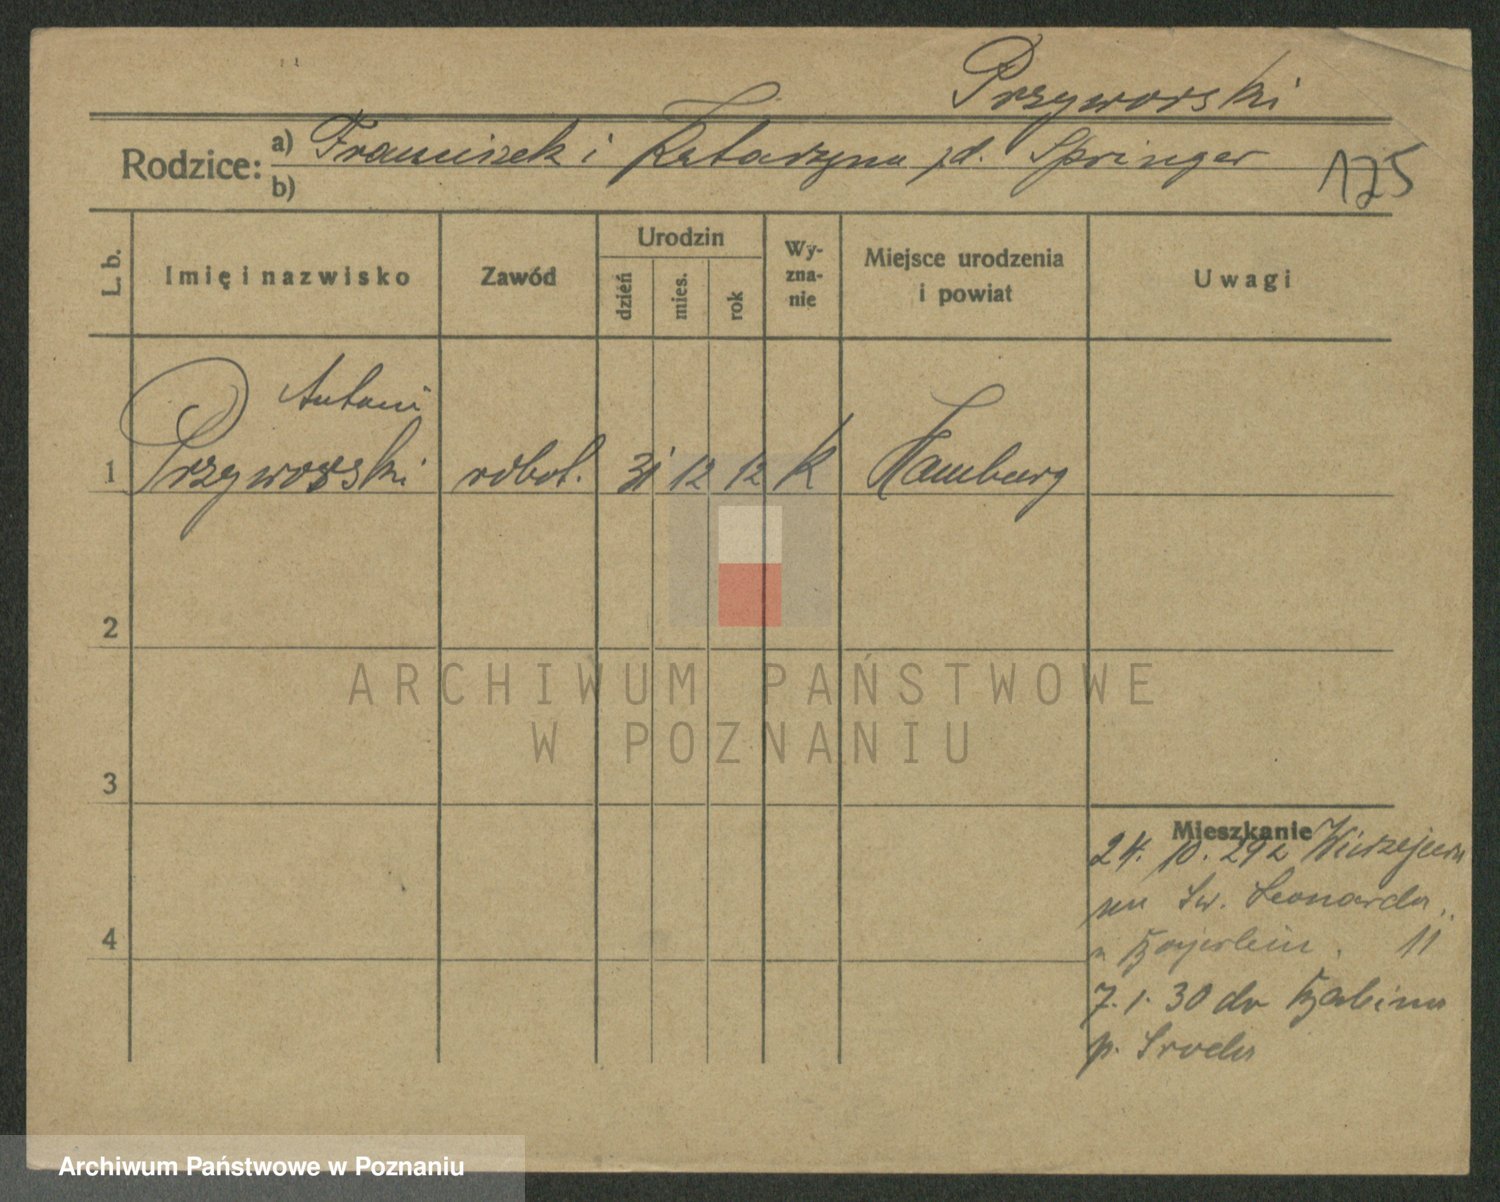 Przyworski
Rodzice: a) Franciszek i Katarzyna zd. Springer
b)
175
L. b.
Imię i nazwisko
Zawód
Urodzin
dzień
mies.
rok
Wy-
zna-
nie
Miejsce urodzenia
i powiat
Uwagi
Antoni
1 Przyworski robot. 31 12 12 K Hamburg
2
ARCHIWUM PAŃSTWOWE
W POZNANIU
3
Mieszkanie
24. 10. 29 z
na Św. Leonarda
u 11
7. 1. 30 do
p. Środa
4
Archiwum Państwowe w Poznaniu